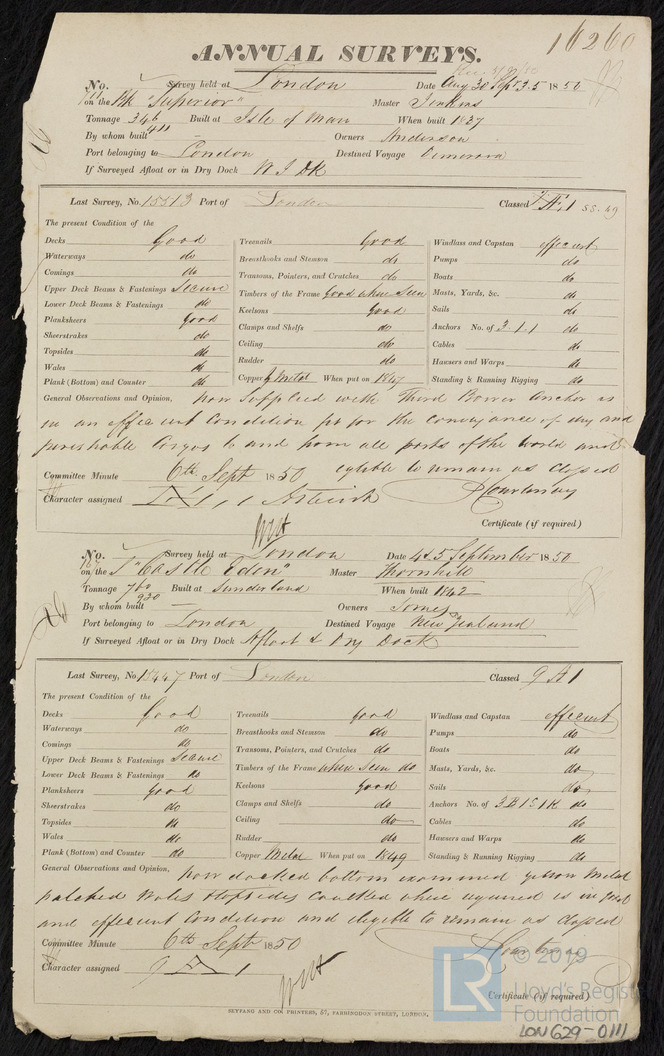 16260
ANNUAL SURVEYS.
No. Survey held at London Date Aug 30 Sept 3.5 1850
on the Bk "Superior" Master Jenkins
Tonnage 346 Built at Isle of Man When built 1837
411
By whom built — Owners Anderson
Port belonging to London Destined Voyage Demerara
If Surveyed Afloat or in Dry Dock W I Dk
Last Survey, No. 15513 Port of London Classed Æ 1 SS. 49
The present Condition of the
Decks Good Treenails Good Windlass and Capstan efficient
Waterways do Breasthooks and Stemson do Pumps do
Comings do Transoms, Pointers, and Crutches do Boats do
Upper Deck Beams & Fastenings Secure Timbers of the Frame Good when Seen Masts, Yards, &c. do
Lower Deck Beams & Fastenings do Keelsons Good Sails do
Planksheers Good Clamps and Shelfs do Anchors No. of 3.1.1 do
Sheerstrakes do Ceiling do Cables do
Topsides do Rudder do Hawsers and Warps do
Wales do Copper Y Metal When put on 1847 Standing & Running Rigging do
Plank (Bottom) and Counter do
General Observations and Opinion, now Supplied with Third Bower Anchor is
in an efficient Condition fit for the conveyance of dry and
perishable Cargos to and from all parts of the world and
eligible to remain as classed
Committee Minute 6th Sept 1850
Character assigned Æ 1,
Courtenay
Certificate (if required)
No. Survey held at London Date 4 & 5 September 1850
on the S "Castle Eden" Master Thornhill
Tonnage 760 Built at Sunderland When built 1842
930
By whom built — Owners Somes
Port belonging to London Destined Voyage New Zealand
If Surveyed Afloat or in Dry Dock Afloat & Dry Dock
Last Survey, No. 15447 Port of London Classed 9 A 1
The present Condition of the
Decks Good Treenails Good Windlass and Capstan efficient
Waterways do Breasthooks and Stemson do Pumps do
Comings do Transoms, Pointers, and Crutches do Boats do
Upper Deck Beams & Fastenings Secure Timbers of the Frame when Seen do Masts, Yards, &c. do
Lower Deck Beams & Fastenings do Keelsons Good Sails do
Planksheers Good Clamps and Shelfs do Anchors No. of 3B 1S 1K do
Sheerstrakes do Ceiling do Cables do
Topsides do Rudder do Hawsers and Warps do
Wales do Copper Metal When put on 1849 Standing & Running Rigging do
Plank (Bottom) and Counter do
General Observations and Opinion, now docked bottom examined yellow Metal
patched Wales & topsides Caulked where required is in good
and efficient Condition and eligible to remain as classed
Committee Minute 6th Sept 1850
Courtenay
Character assigned 9 A 1
Certificate (if required)
SEYFANG AND CO. PRINTERS, 57, FARRINGDON STREET, LONDON.
LR © 2019
Lloyd's Register
Foundation
LON 629-0111